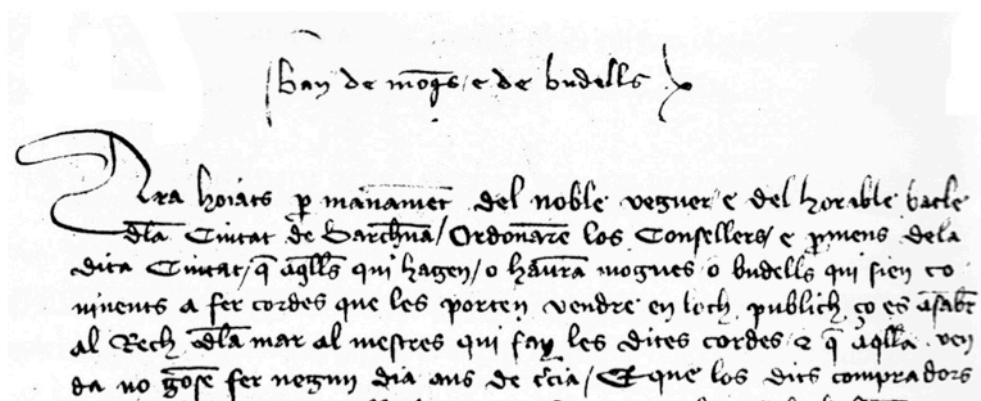 Ban de moq̃s / e de budells
Ara hoiats p̲ manam̃et del noble veguer e del hor̃able batle
d̃la Ciutat de Barch̃na / Ordonar̃e los Consellers / e p̲mens dela
dita Ciutat / q̃ aq̃lls qui hagen / o haur̃a mogues o budells qui sien co
ninents a fer cordes que les porten vendre en loch publich ço es aſab̃r
al Rech d̃la mar al mestres qui fan les dites cordes ⁊ q̃ aq̃lla ven
da no gos̃e fer negun dia ans de t̃cia / Et que los dits compradors